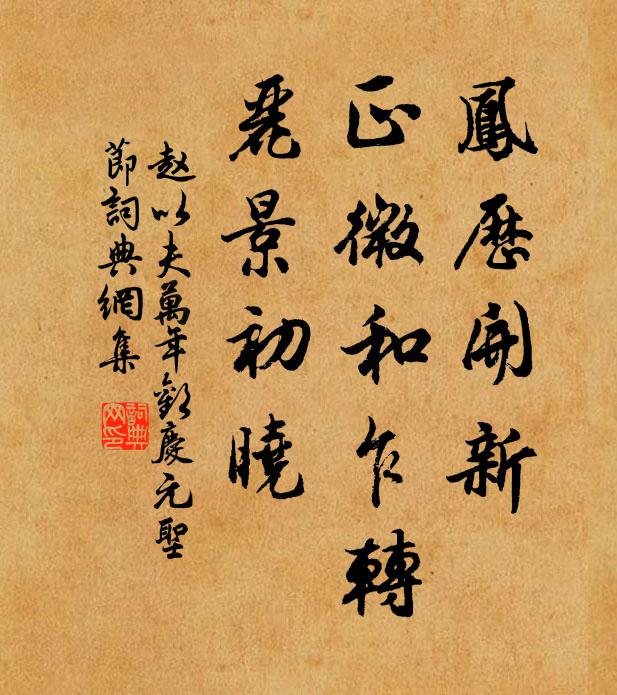 鳳歷開新
正微和乍轉
麗景初曉
赵以夫萬年歡慶元聖
節詞典網集
詞典
网印